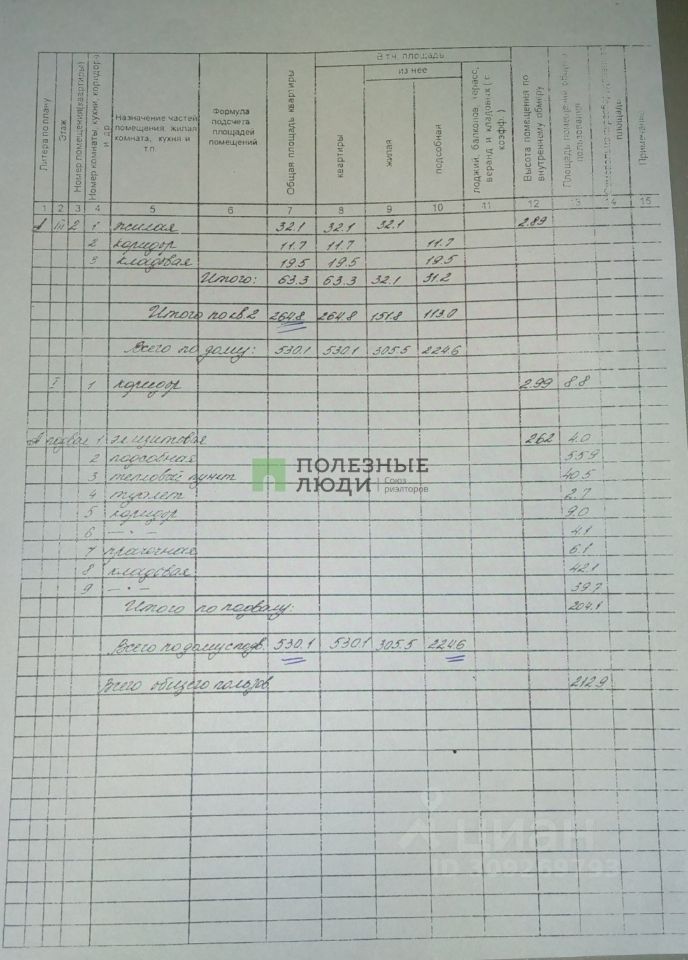 В т.ч. площадь
из нее
Литера по плану
Этаж
Номер помещения(квартиры)
Номер комнаты, кухни, коридора и др.
Назначение частей помещения: жилая комната, кухня и т.п.
Формула подсчета площадей помещений
Общая площадь квартиры
квартиры
жилая
подсобная
лоджий, балконов, террас, веранд и кладовых ( с коэфф. )
Высота помещения по внутреннему обмеру
Площадь помещений общего пользования
площадь
Примечание
1 2 3 4 5 6 7 8 9 10 11 12 13 14 15
А III 2 1 жилая 32.1 32.1 32.1 2.89
2 коридор 11.7 11.7 11.7
3 кладовая 19.5 19.5 19.5
Итого: 63.3 63.3 32.1 31.2
Итого по кв.2 264.8 264.8 151.8 113.0
Всего по дому: 530.1 530.1 305.5 224.6
I 1 коридор 2.99 8.8
А подвал 1 эл.щитовая 2.62 4.0
2 подсобная 55.9
3 тепловой пункт 40.5
4 туалет 2.7
5 коридор 9.0
6 — • — 4.1
7 прачечная 6.1
8 кладовая 42.1
9 — • — 39.7
Итого по подвалу: 204.1
Всего по дому с подв. 530.1 530.1 305.5 224.6
Всего общего пользов. 212.9
ПОЛЕЗНЫЕ
ЛЮДИ
Союз
риэлторов
ЦИАН
ID 309269793